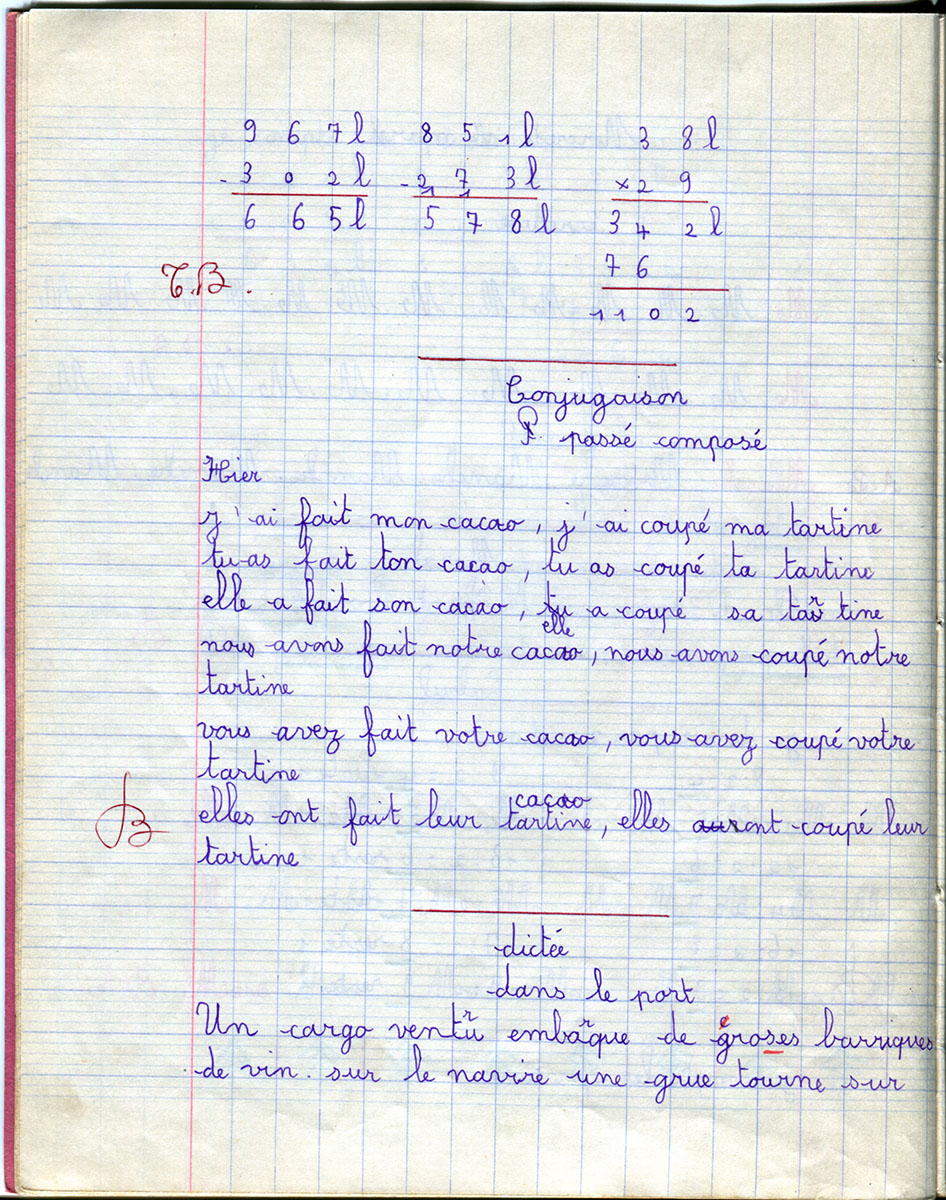 9 6 7l 8 5 1l 3 8l
- 3 0 2l - 2 7 3l × 2 9
1 1
6 6 5l 5 7 8l 3 4 2l
T.B. 7 6
1 1 0 2
Conjugaison
P. passé composé
Hier
j'ai fait mon cacao, j'ai coupé ma tartine
tu as fait ton cacao, tu as coupé ta tartine
elle a fait son cacao, tu a coupé sa tartine
elle
nous avons fait notre cacao, nous avons coupé notre
tartine
vous avez fait votre cacao, vous avez coupé votre
tartine
cacao
B elles ont fait leur tartine, elles auront coupé leur
tartine
dictée
dans le port
Un cargo ventru embarque de groses barriques
de vin. sur le navire une grue tourne sur